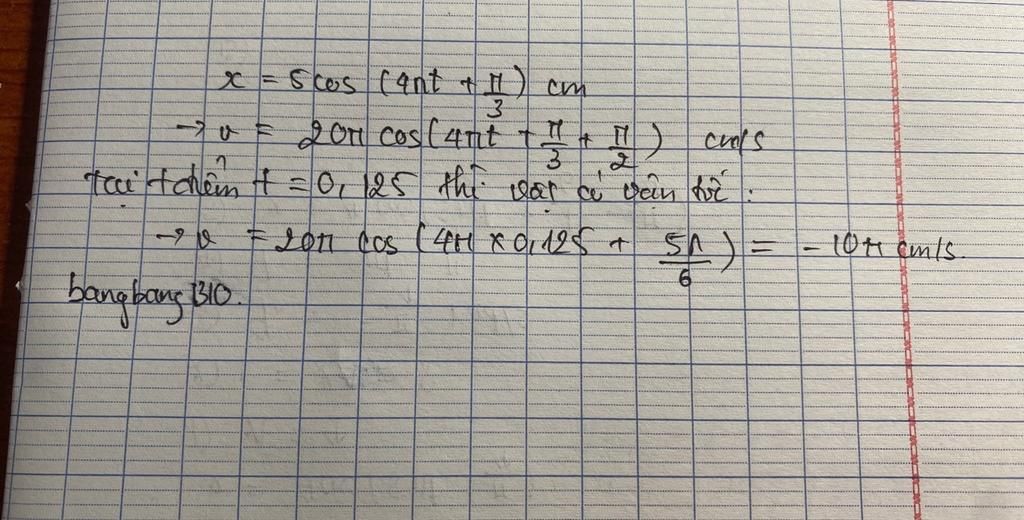 x = 5 cos (4πt + π/3) cm
→ v = 20π cos (4πt + π/3 + π/2) cm/s
tại t điểm t = 0,125 thì vật có vận tốc:
→ v = 20π cos (4π x 0,125 + 5π/6) = -10π cm/s.
bangbang1310.